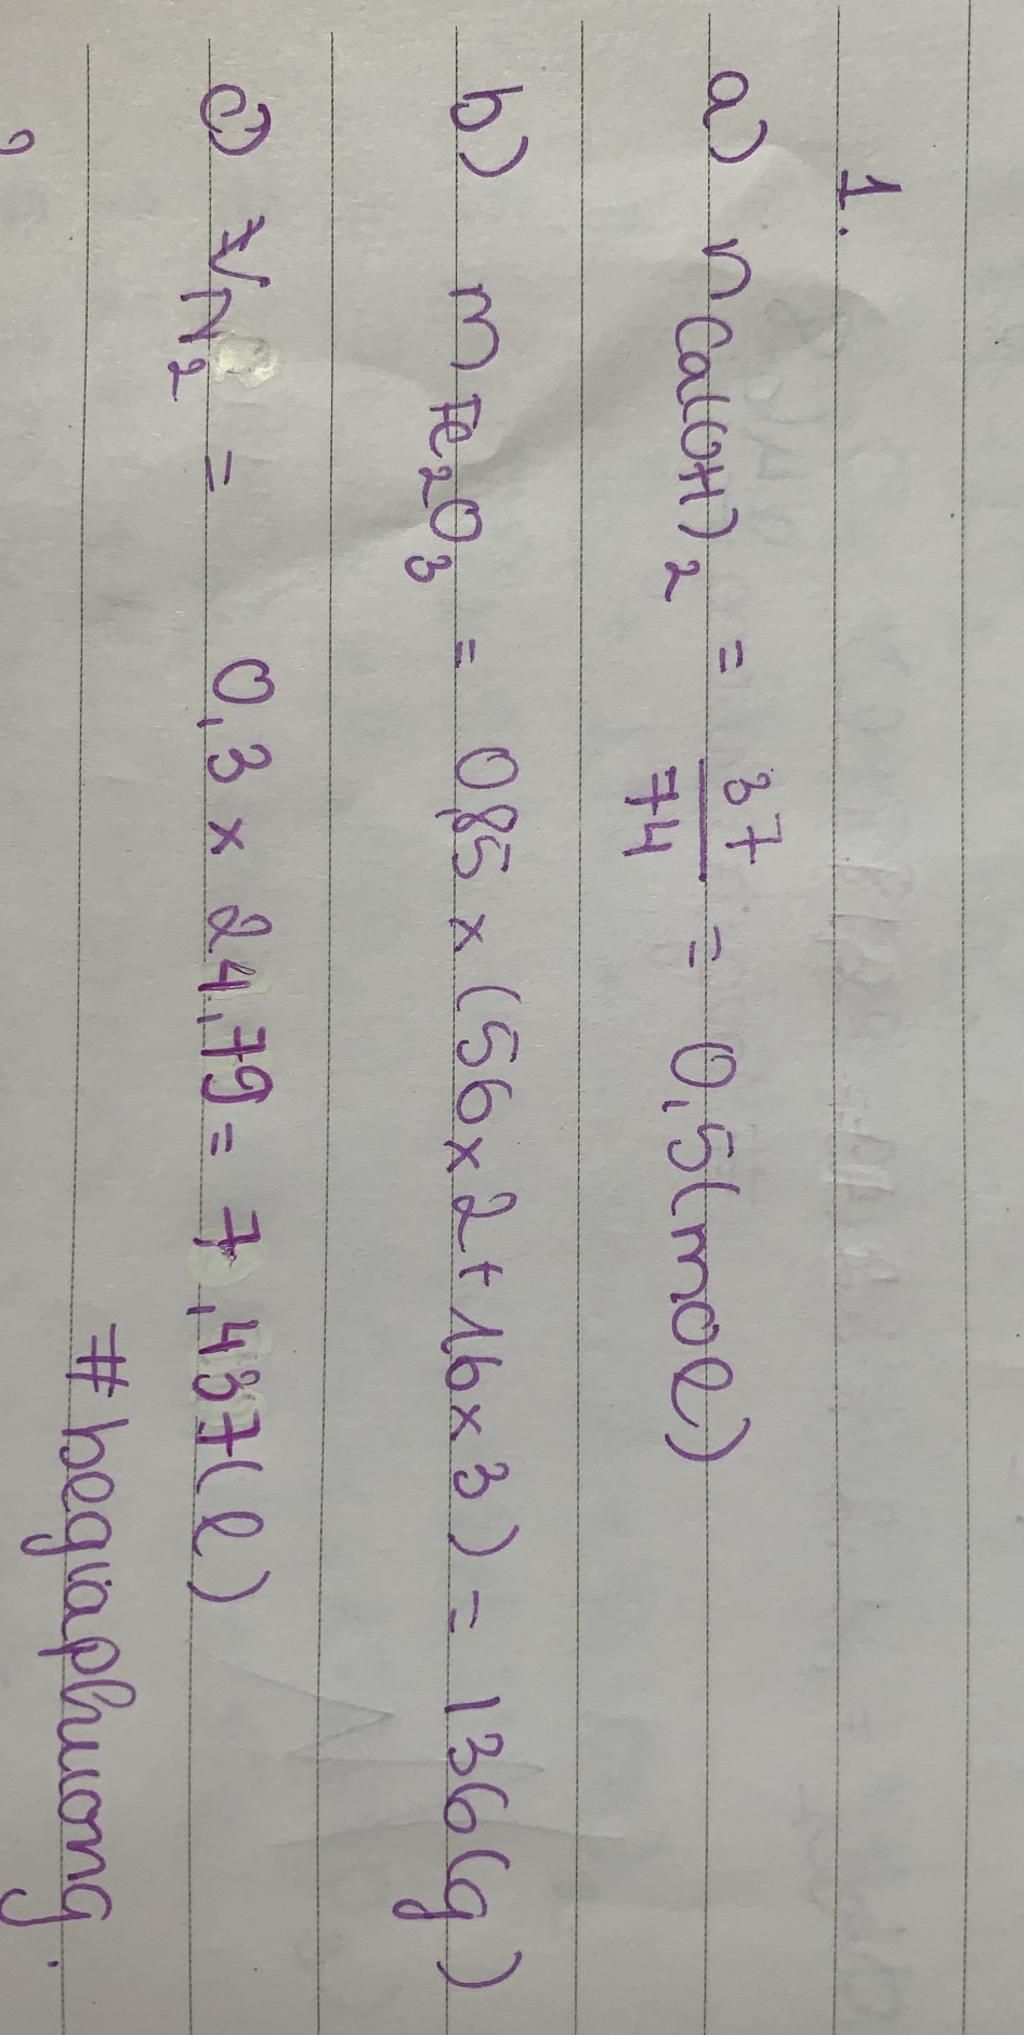 1.
a) nCa(OH)2 = 37/74 = 0,5(mol)
b) mFe2O3 = 0,85 x (56 x 2 + 16 x 3) = 136(g)
c) VN2 = 0,3 x 24,79 = 7,437(l)
#begiaphuong.